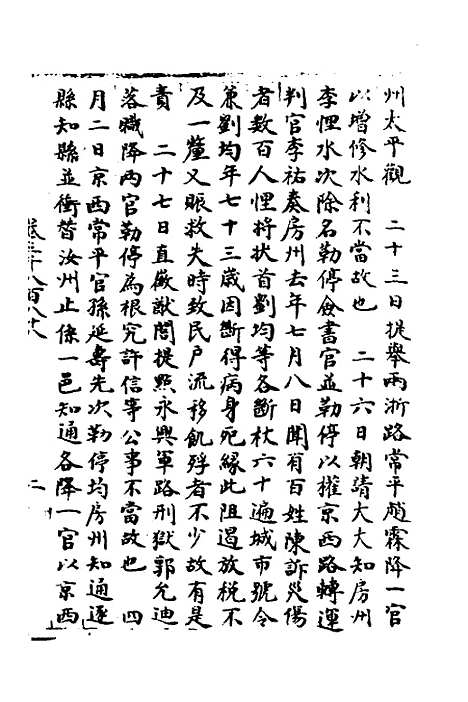 州太平觀　二十三日提舉兩浙路常平趙霖降一官
以增修水利不當故也　二十六日朝請大夫知房州
李悝水次除名勒停僉書官並勒停以權京西路轉運
判官李祐奏房州去年七月八日聞有百姓陳訴災傷
者数百人悝將狀首劉均等各斷杖六十遍城市號令
兼劉均年七十三歲因斷得病身死緣此阻遏放稅不
及一釐又賑救失時致民戶流移飢殍者不少故有是
責　二十七日直徽猷閣提點永興軍路刑獄郭允迪
落職降兩官勒停為根究許信等公事不當故也　四
月二日京西常平官孫延壽先次勒停均房州知通逐
縣知縣並衝替汝州止係一邑知通各降一官以京西